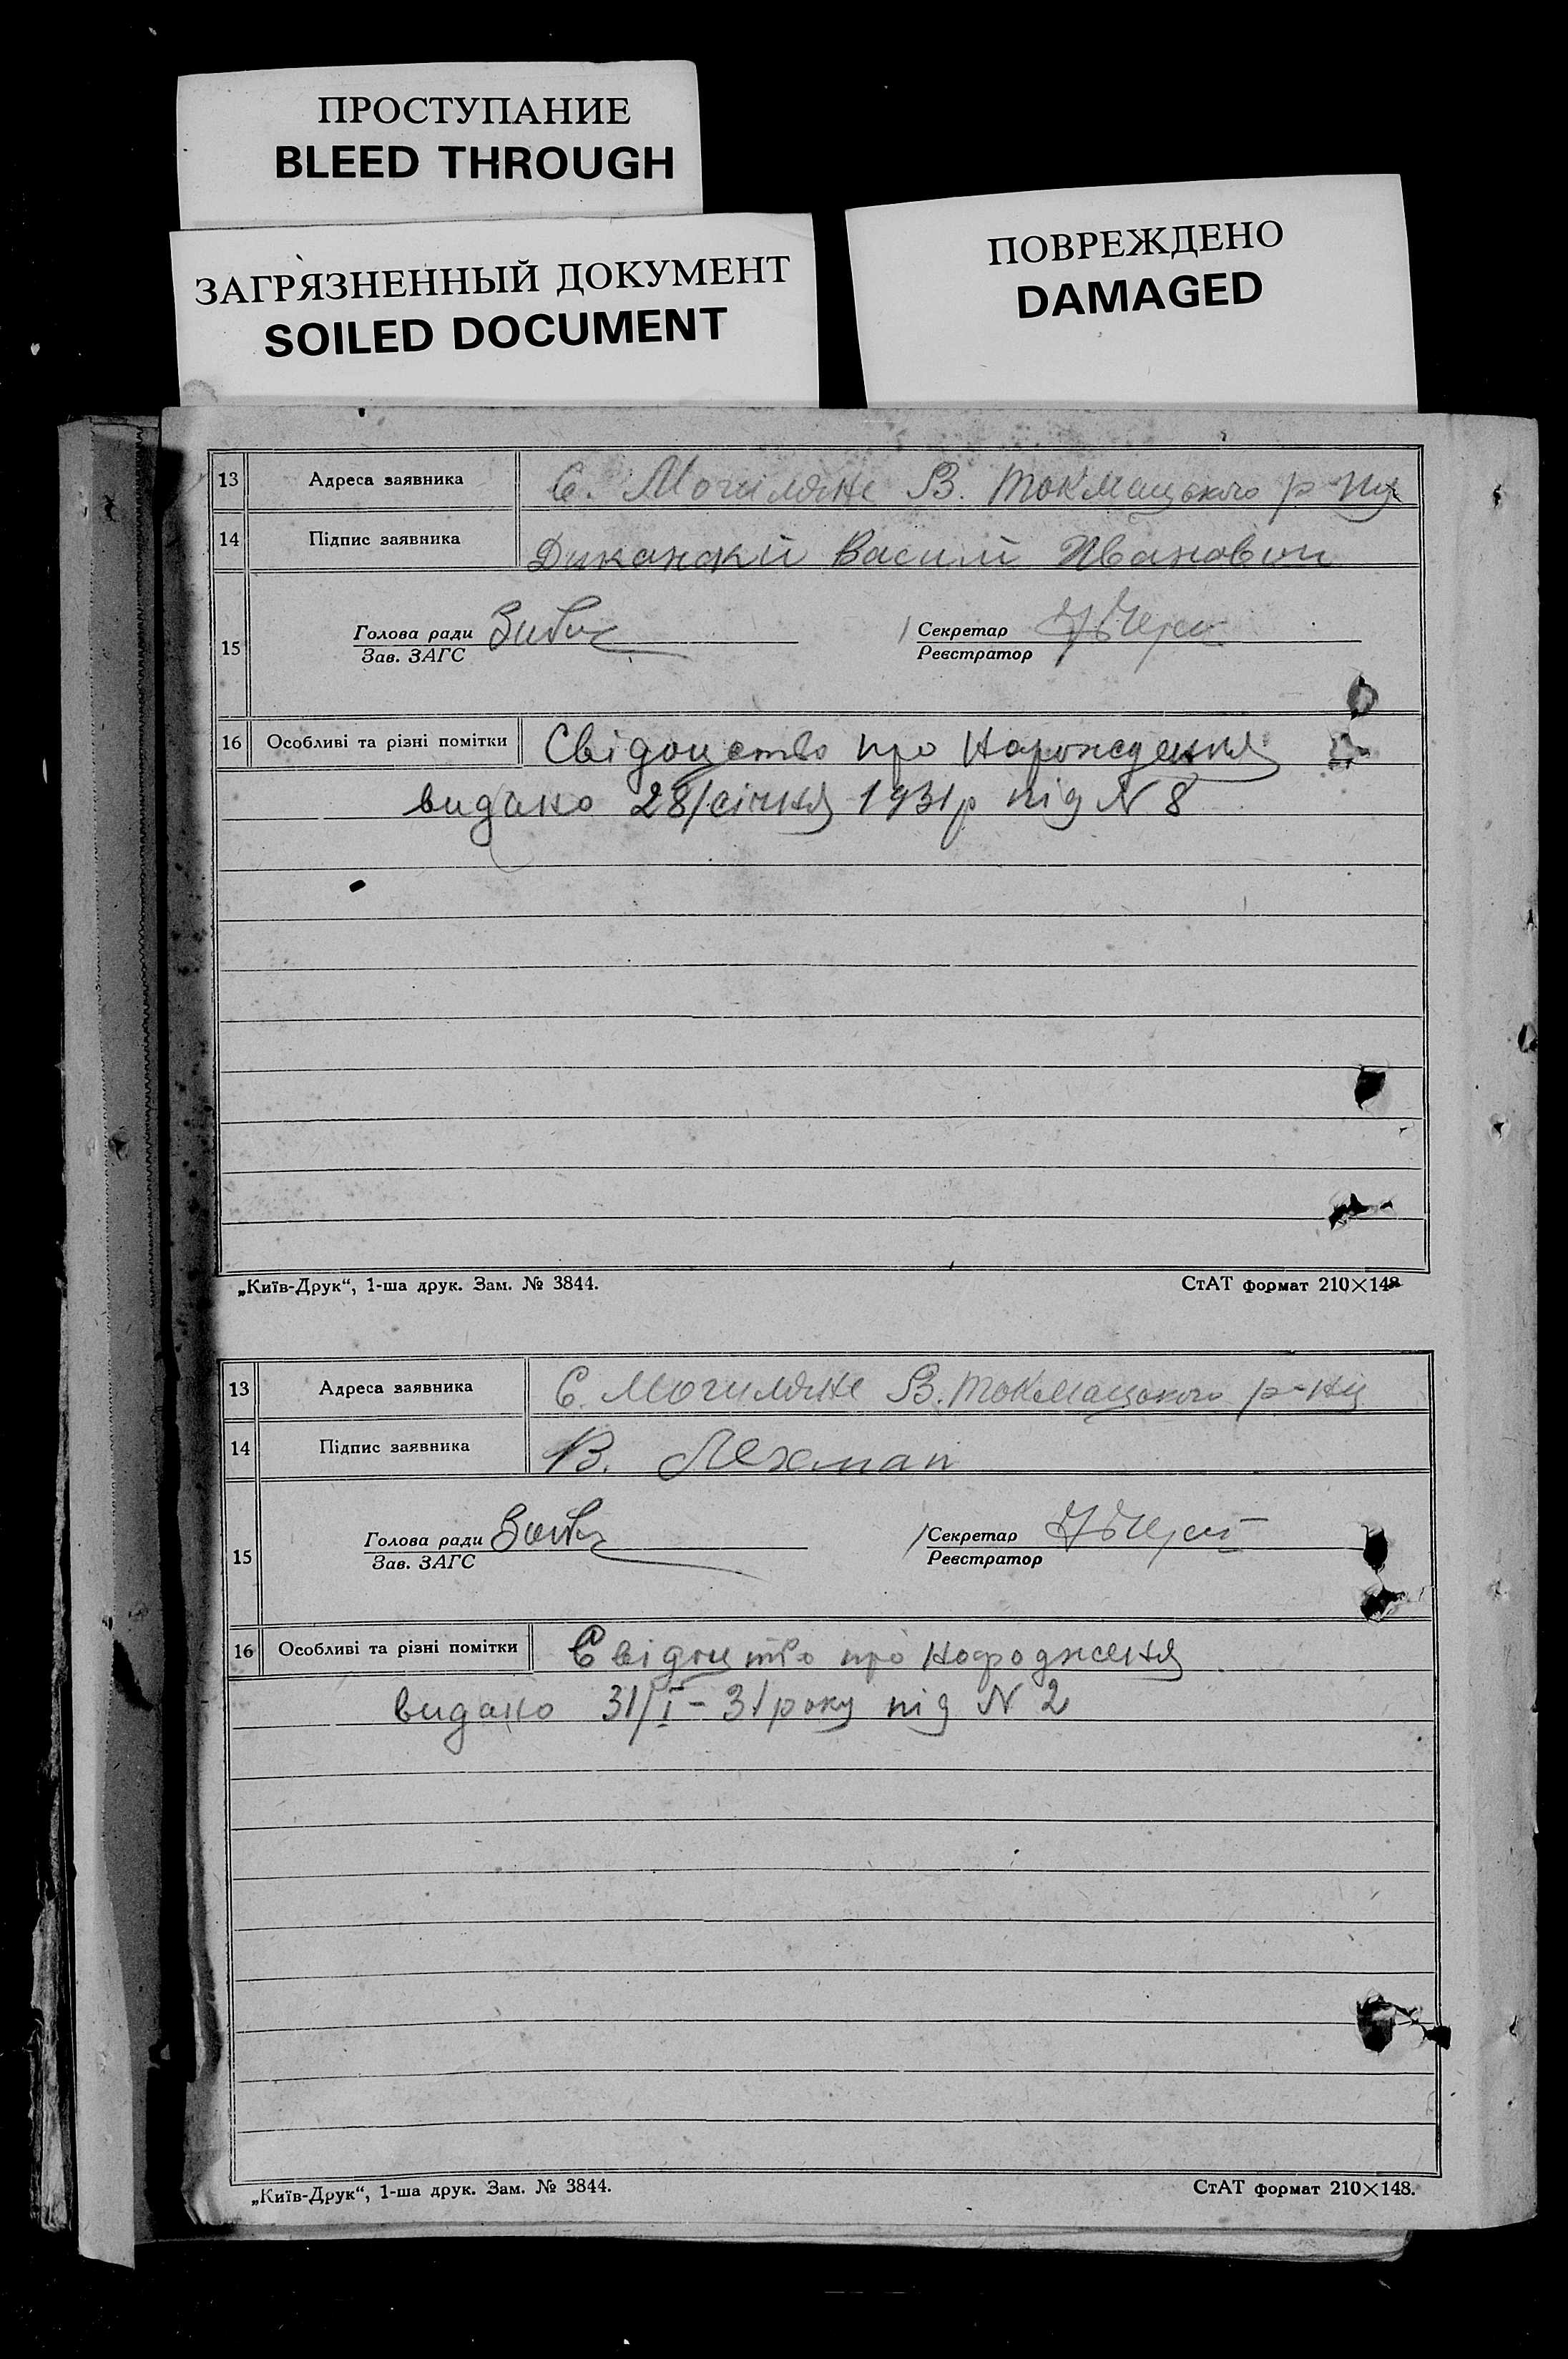 ПРОСТУПАНИЕ
BLEED THROUGH
ЗАГРЯЗНЕННЫЙ ДОКУМЕНТ
SOILED DOCUMENT
ПОВРЕЖДЕНО
DAMAGED
13 Адреса заявника С. Могиляне В. Токмацького р-ну
14 Підпис заявника Диканский Васили Иванович
15 Голова ради Секретар
Зав. ЗАГС Реєстратор
16 Особливі та різні помітки Свідоцство про Нарождения
видано 28/січня 1931р під N 8
„Київ-Друк“, 1-ша друк. Зам. № 3844. СтАТ формат 210×148
13 Адреса заявника С. Могиляне В. Токмацького р-ну
14 Підпис заявника В. Лехман
15 Голова ради Секретар
Зав. ЗАГС Реєстратор
16 Особливі та різні помітки Свідоцтво про народження
видано 31/I-31року під N 2
„Київ-Друк“, 1-ша друк. Зам. № 3844. СтАТ формат 210×148.